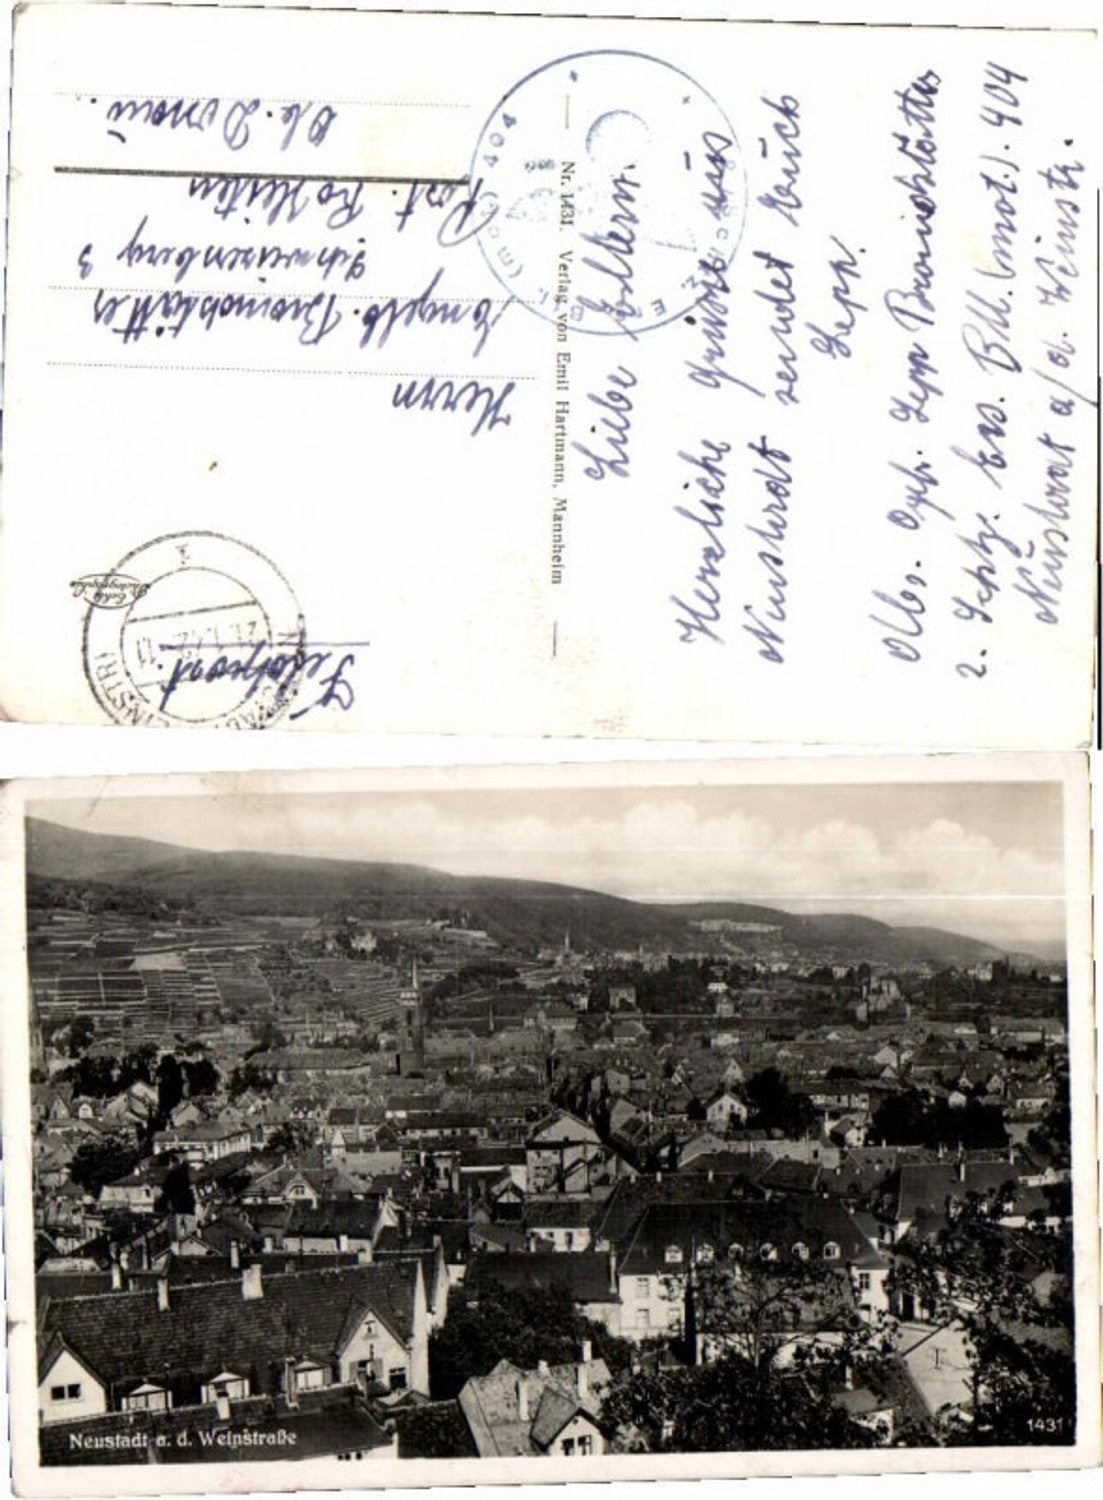 Feldpost
Herrn
Engelb. Bramböttler
Schweizerberg 3
Post. Rohleiten
Ob. Donau.
Nr. 1431. Verlag von Emil Hartmann, Mannheim
Liebe Eltern.
Herzliche Grüße aus
Neustadt sendet Euch
Sepp.
Abs. Sepp
2. Ers. Btl. (mot.) 404
Neustadt a/d. Weinstr.
(mot) 404
Neustadt a. d. Weinstraße
1431